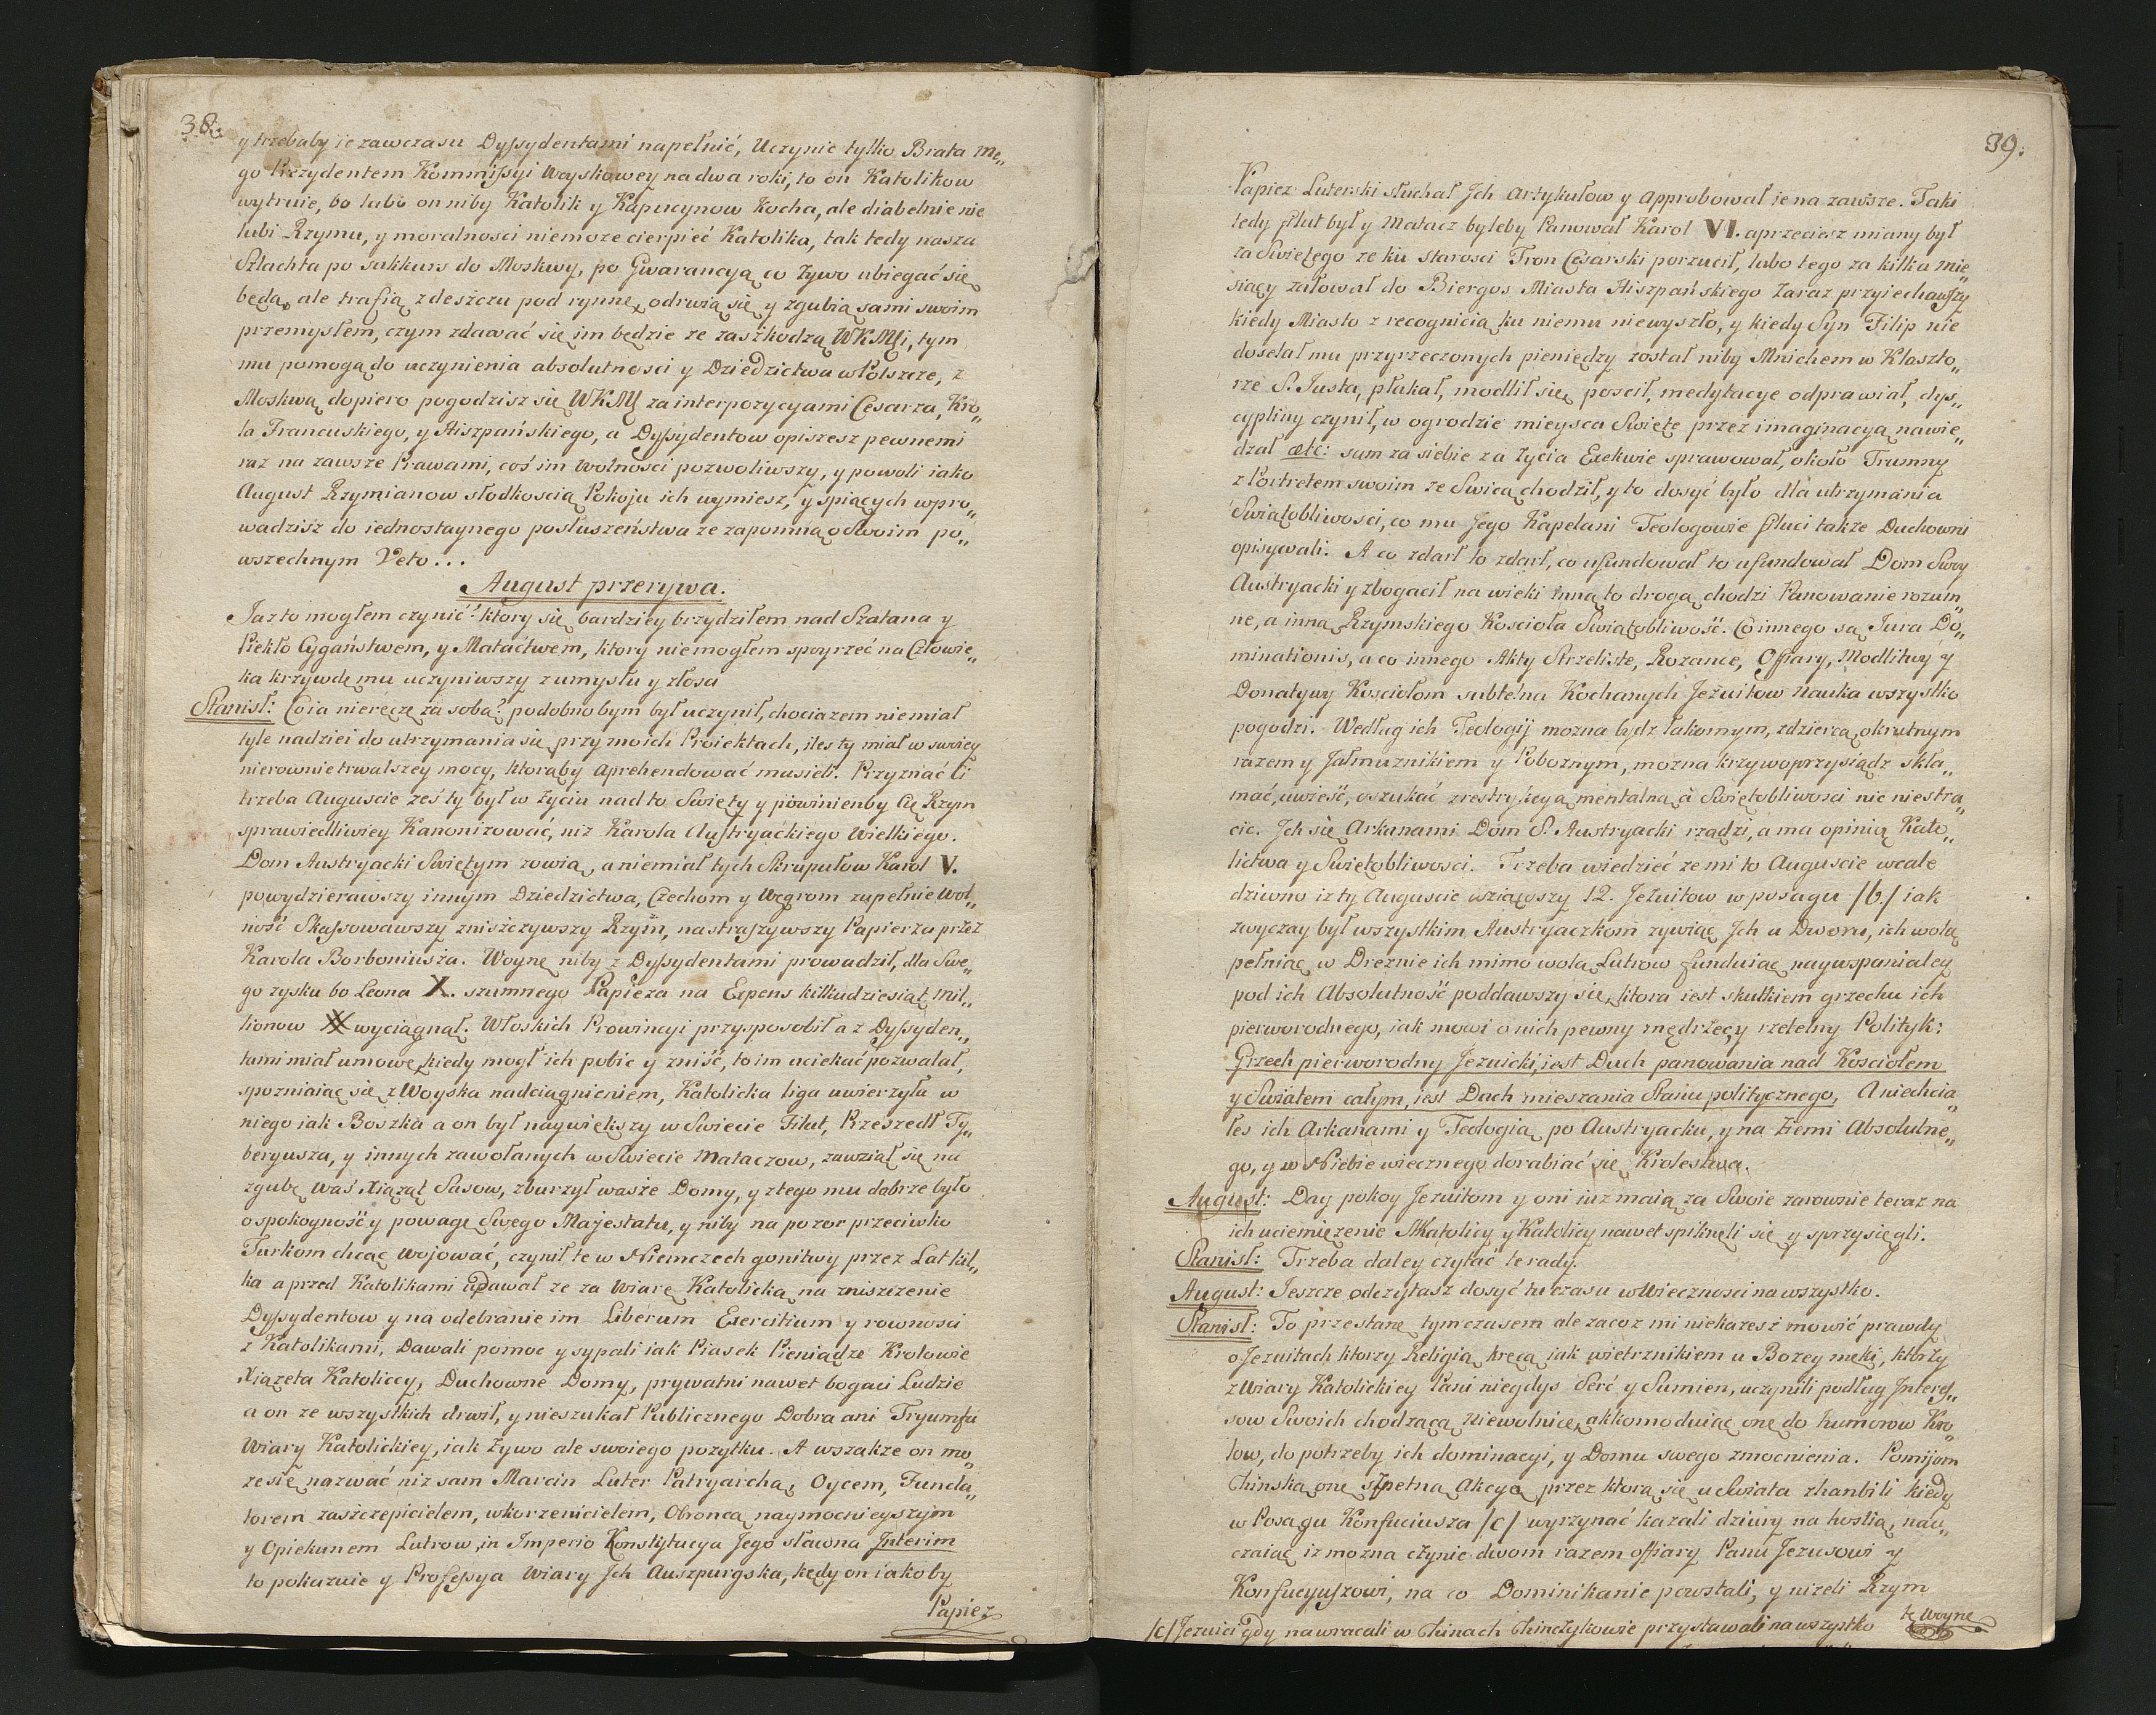 38.
y trzebaby ie zawczasu Dyssydentami napełnić, Uczynić tylko Brata me„
go Prezydentem Kommissyi Woyskowey na dwa roki, to on Katolikow
wytruie, bo lubo on niby Katolik y Kapucynow kocha, ale diabelnie nie
lubi Rzymu, y moralnosci niemoze cierpieć Katolika, tak tedy nasza
Szlachta po sukkurs do Moskwy, po Gwarancyą co żywo ubiegać się
będą, ale trafią z deszczu pod rynnę, odrwią się y zgubią sami swoim
przemysłem, czym zdawać się im będzie ze zaszkodzą WKMCi, tym
mu pomogą do uczynienia absolutnosci y Dziedzictwa w Polszcze, z
Moskwą dopiero pogodzisz się WKMC za interpozycyami Cesarza, Kro„
la Francuskiego, y Hiszpańskiego, a Dyssydentow opiszesz pewnemi
raz na zawsze Prawami, coś im Wolności pozwoliwszy, y powoli iako
August Rzymianow słodkoscią Pokoju ich wymiesz, y spiących wpro„
wadzisz do iednostaynego posłuszeństwa ze zapomną o Swoim po„
wszechnym Veto...
August przerywa.
Jaz to mogłem czynić? ktory się bardziey brzydziłem nad Szatana y
Piekło Cygaństwem, y Mataćtwem, ktory niemogłem spoyrzeć na Człowie„
ka krzywdę mu uczyniwszy z umysłu y złosa
Stanisł: Coia nieręczę za sobą? podobno bym był uczynił, chociazem niemiał
tyle nadziei do utrzymania się przy moich Proiektach, ileś ty miał w swoiey
nierownie trwalszey mocy, ktorąby aprehendować musieli. Przyznać Ci
trzeba Auguscie ześ ty był w życiu nad to Swięty y powinienby Cię Rzym
sprawiedliwiey Kanonizować, niz Karola Austryackiego Wielkiego.
Dom Austryacki Swiętym zowią, a niemiał tych Skrupułow Karol V.
powydzierawszy innym Dziedzictwa, Czechom y Węgrom zupełnie Wol„
ność Skassowawszy zniszczywszy Rzym, nastraszywszy Papierza przez
Karola Borboniusza. Woynę niby z Dyssydentami prowadził, dla Swe„
go zysku bo Leona X. szumnego Papieza na Expens kilkudziesiąt mil„
lionow wyciągnął. Włoskich Prowincyi przysposobił a z Dyssyden„
tami miał umowę, kiedy mogł ich pobić y zniść, to im uciekać pozwalał,
spozniaiąc się z Woyska nadciągnieniem, Katolicka liga uwierzyła w
niego iak Boszka a on był naywiększy w Swiecie Filut, Przeszedł Ty„
beryusza, y innych zawołanych w Swiecie Mataczow, zawziął się na
zgubę was Xiąząt Sasow, zburzył wasze Domy, y z tego mu dobrze było
o spokoyność y powagę Swego Majestatu, y niby na pozor przeciwko
Turkom chcąc wojować, czynił te w Niemczech gonitwy przez Lat kil„
ka a przed Katolikami udawał ze za Wiarę Katolicką na zniszczenie
Dyssydentow y na odebranie im Liberum Exercitium y rownosci
z Katolikami, Dawali pomoc y sypali iak Piasek Pieniądze Krolowie
Xiązęta Katoliccy, Duchowne Domy, prywatni nawet bogaci Ludzie
a on ze wszystkich drwił, y nieszukał Publicznego Dobra ani Tryumfu
Wiary Katolickiey, iak żywo ale swoiego pozytku. A wszakze on mo„
ze się nazwać niz sam Marcin Luter Patryarchą, Oycem, Funda„
torem zaszczepicielem, wkorzenicielem, Obroncą naymocnieyszym
y Opiekunem Lutrow, in Imperio Konstytucya Jego sławna Interim
to pokazuie y Professya Wiary Ich Auszpurgska, kędy on iakoby
Papiez
39.
Papiez Luterski słuchał Ich artykułow y approbował ie na zawsze. Taki
tedy filut był y Matacz byleby Panował Karol VI. a przeciesz miany był
za Swiętego ze ku starosci Tron Cesarski porzucił, lubo tego za kilka mie„
siący załował do Biergos Miasta Hiszpańskiego zaraz przyiechawszy
kiedy Miasto z recognicią ku niemu niewyszło, y kiedy Syn Filip nie
dosełał mu przyrzeczonych pieniędzy został niby Mnichem w Klaszto„
rze S. Iusta, płakał, modlił się, poscił, medytacye odprawiał, dys„
cypliny czynił, w ogrodzie mieysca Swięte przez imaginacyą nawie„
dzał etc: sam za siebie za życia Exekwie sprawował, około Trumny
z Portretem swoim ze Swicą chodził, y to dosyć było dla utrzymania
Swiątobliwosci, co mu Jego Kapelani Teologowie filuci takze Duchowni
opisywali. A co zdarł to zdarł, co ufundował to ufundował Dom Swoy
Austryacki y zbogacił na wieki inną to drogą chodzi Panowanie rozum„
ne, a inną Rzymskiego Koscioła Swiątobliwość. Co innego są Iura Do„
minationis, a co innego Akty Strzeliste, Rozance, Offiary, Modlitwy y
Donatywy Kosciołom subtelna Kochanych Jezuitow nauka wszystko
pogodzi. Według ich Teologij mozna bydz łakomym, zdziercą, okrutnym
razem y Jałmuznikiem y Poboznym, mozna krzywoprzysiądz skła„
mać, uwieść, oszukać z restrykcyą mentalną a Swiętobliwosci nic niestra„
cić. Ich się Arkanami Dom S. Austryacki rządzi, a ma opinią Kato„
lictwa y Swiętobliwosci. Trzeba wiedzieć ze mi to Auguscie wcale
dziwno iz ty Auguscie wziąwszy 12. Jezuitow w posagu /b/ iak
zwyczay był wszystkim Austryaczkom zywiąc Ich u Dworu, ich wolą
pełniąc w Dreznie ich mimo wolą Lutrow funduiąc naywspanialey
pod ich Absolutność poddawszy się, ktora iest skutkiem grzechu ich
pierworodnego, iak mowi o nich pewny mędrzec, y rzetelny Polityk:
Grzech pierworodny Jezuicki, iest Duch panowania nad Kosciołem
y Swiatem całym, iest Dach mieszania Stanu politycznego, A niechcia„
łes ich Arkanami y Teologią po Austryacku, y na Ziemi Absolutne„
go, y w Niebie wiecznego dorabiać się Krolestwa.
August: Day pokoy Jezuitom y oni iuz maią za Swoie zarownie teraz na
ich uciemięzenie AKatolicy y Katolicy nawet spiknęli się y sprzysięgli.
Stanisł: Trzeba daley czytać te rady.
August: Jeszcze odczytasz dosyć tu czasu w Wiecznosci na wszystko.
Stanisł: To przestanę tym czasem ale zacoz mi niekazesz mowić prawdy
o Jezuitach ktorzy Religią kręcą iak wietrznikiem u Bozey męki, ktorzy
z Wiary Katolickiey Pani niegdys Serć y Sumien, uczynili podług Interes„
sow Swoich chodzącą Niewolnicę, akkomoduiąc onę do humorow Kro„
low, do potrzeby ich dominacyi, y Domu swego zmocnienia. Pomijam
Chinską onę szpetną Akcyą przez ktorą się u Swiata zhanbili kiedy
w Posągu Konfuciusza /c/ wyrzynać kazali dziury na hostią, nau„
czaiąc iz mozna czynić dwom razem offiary Panu Jezusowi y
Konfucyuszowi, na co Dominikanie powstali, y nizeli Rzym
tę Woynę
/c/ Jezuici gdy nawracali w Chinach Chinczykowie przystawali na wszystko